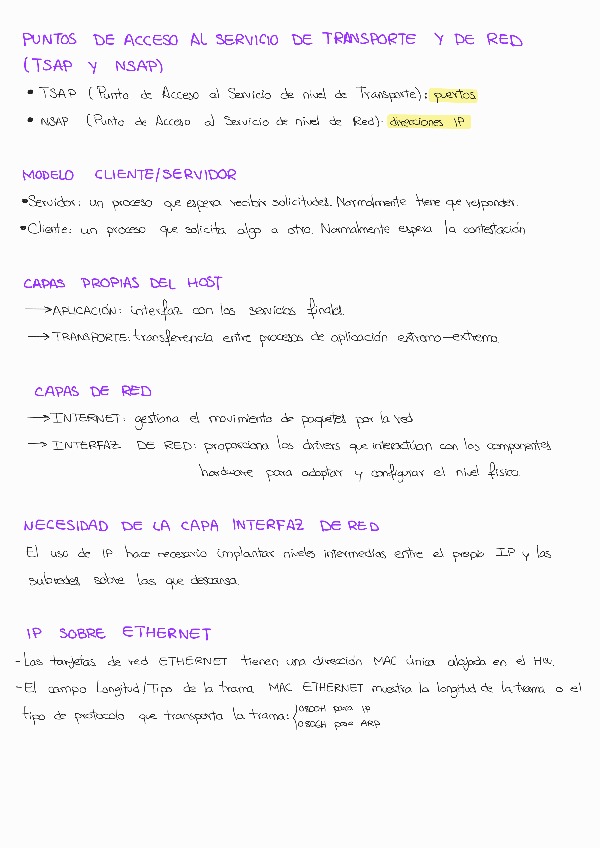 PUNTOS DE ACCESO AL SERVICIO DE TRANSPORTE Y DE RED
(TSAP Y NSAP)
• TSAP (Punto de Acceso al Servicio de nivel de Transporte): puertos
• NSAP (Punto de Acceso al Servicio de nivel de Red): direcciones IP
MODELO CLIENTE/SERVIDOR
• Servidor: un proceso que espera recibir solicitudes. Normalmente tiene que responder.
• Cliente: un proceso que solicita algo a otro. Normalmente espera la contestación
CAPAS PROPIAS DEL HOST
→ APLICACIÓN: interfaz con los servicios finales.
→ TRANSPORTE: transferencia entre procesos de aplicación extremo-extremo.
CAPAS DE RED
→ INTERNET: gestiona el movimiento de paquetes por la red
→ INTERFAZ DE RED: proporciona los drivers que interactúan con los componentes
hardware para adaptar y configurar el nivel físico.
NECESIDAD DE LA CAPA INTERFAZ DE RED
El uso de IP hace necesario implantar niveles intermedios entre el propio IP y las
subredes sobre las que descansa.
IP SOBRE ETHERNET
- Las tarjetas de red ETHERNET tienen una dirección MAC única alojada en el HW.
- El campo Longitud/Tipo de la trama MAC ETHERNET muestra la longitud de la trama o el
tipo de protocolo que transporta la trama: { 0800H para IP
0806H para ARP